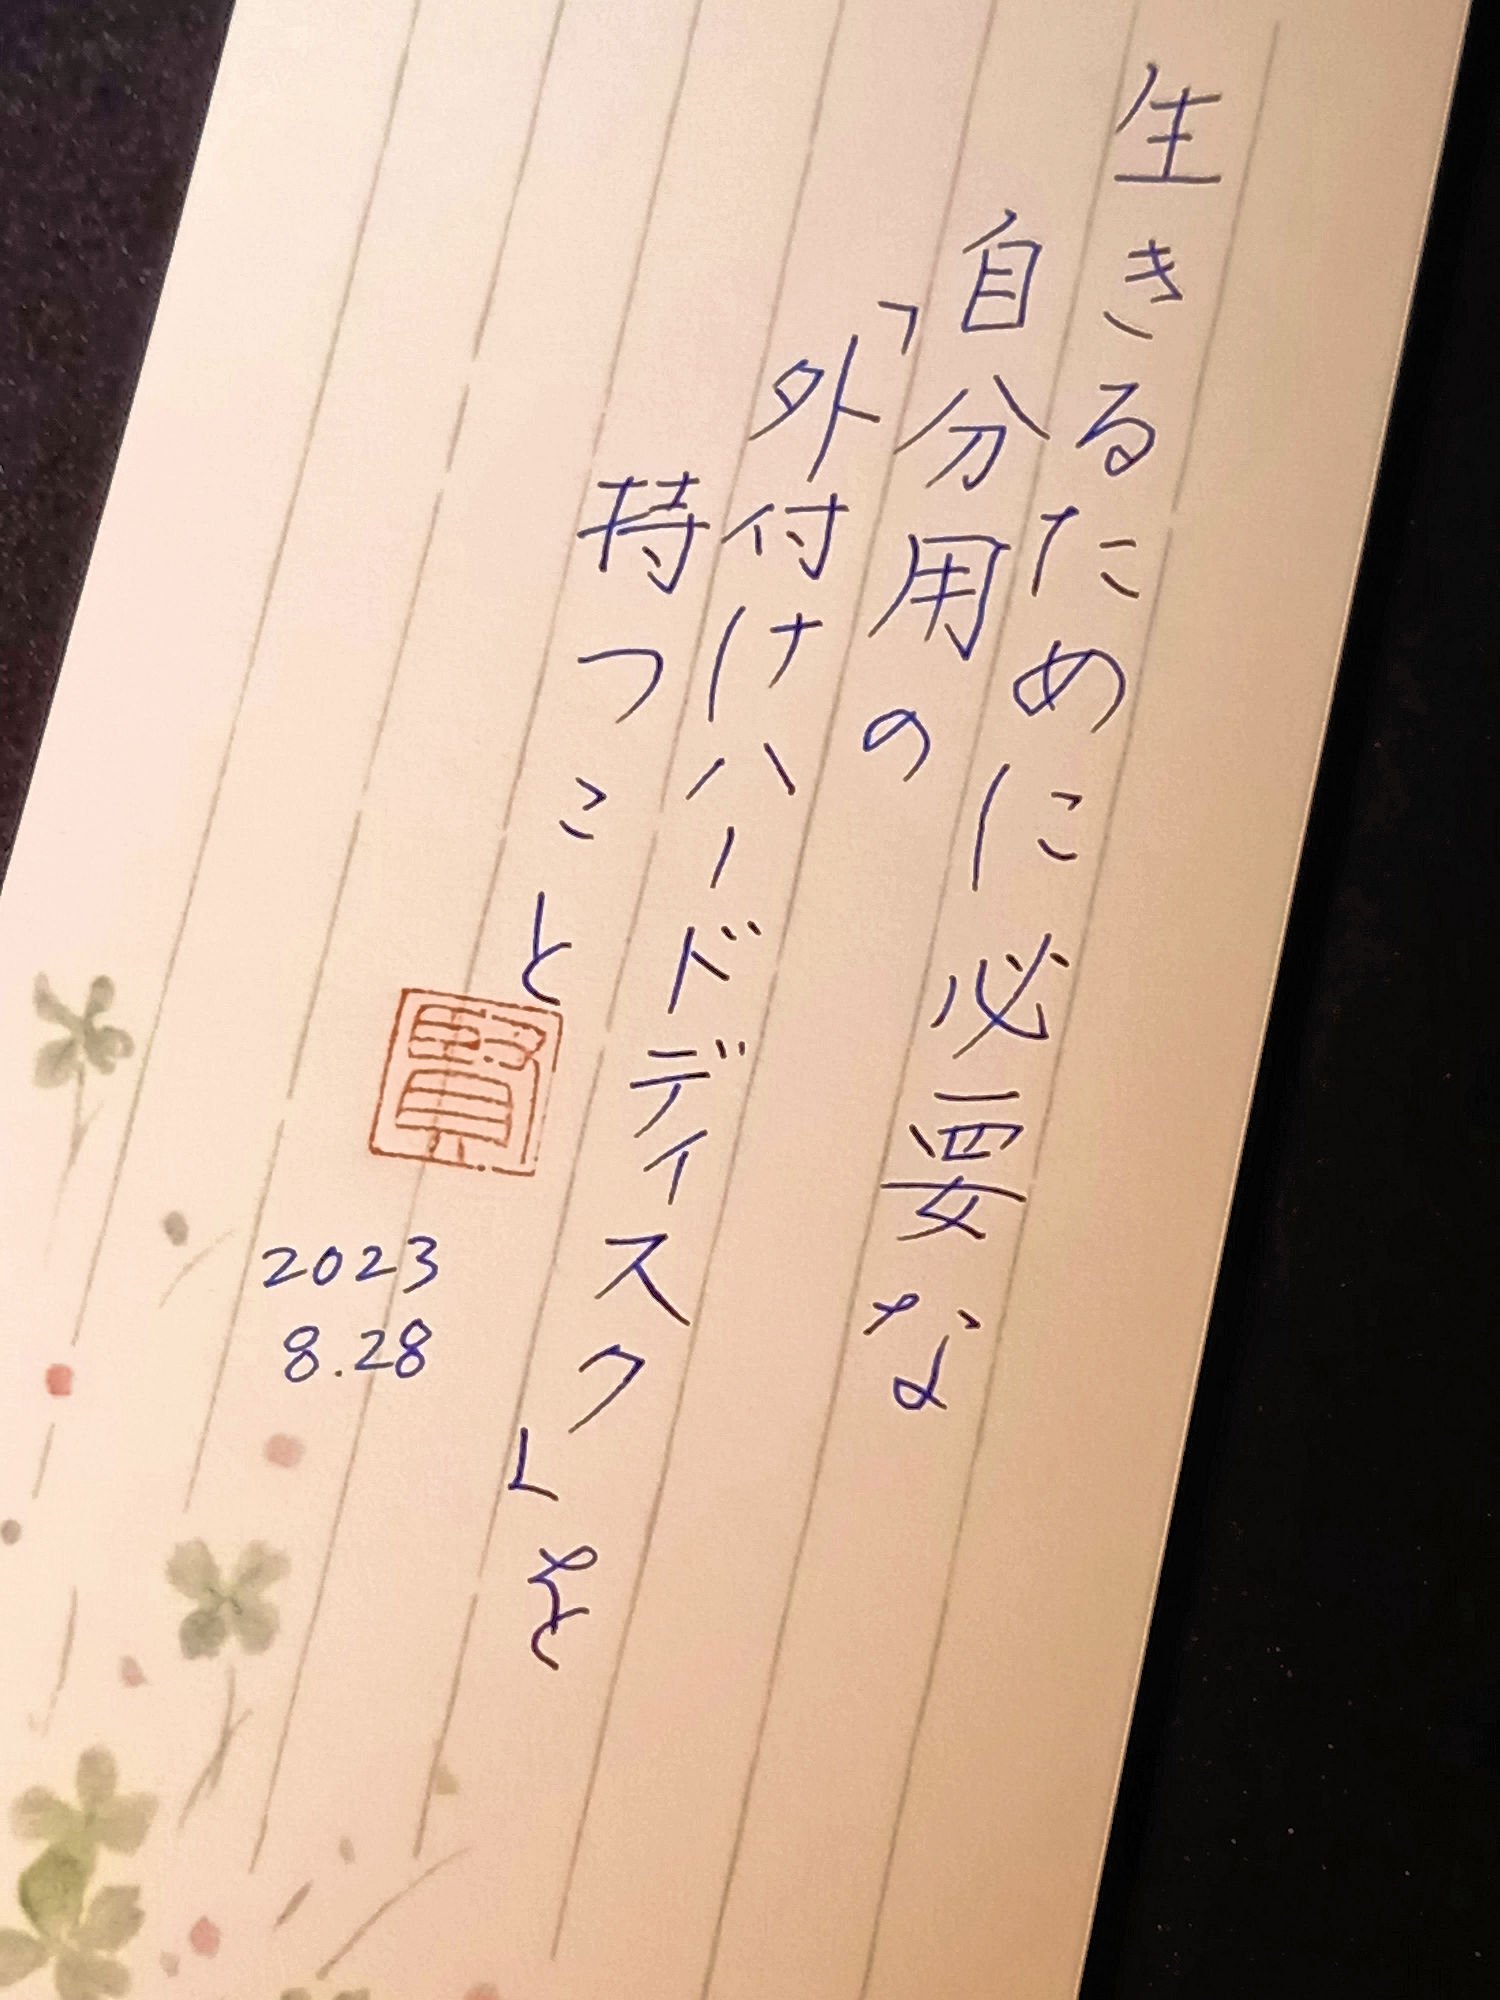 生きるために必要な
自分用の
「外付けハードディスク」を
持つこと
2023
8.28